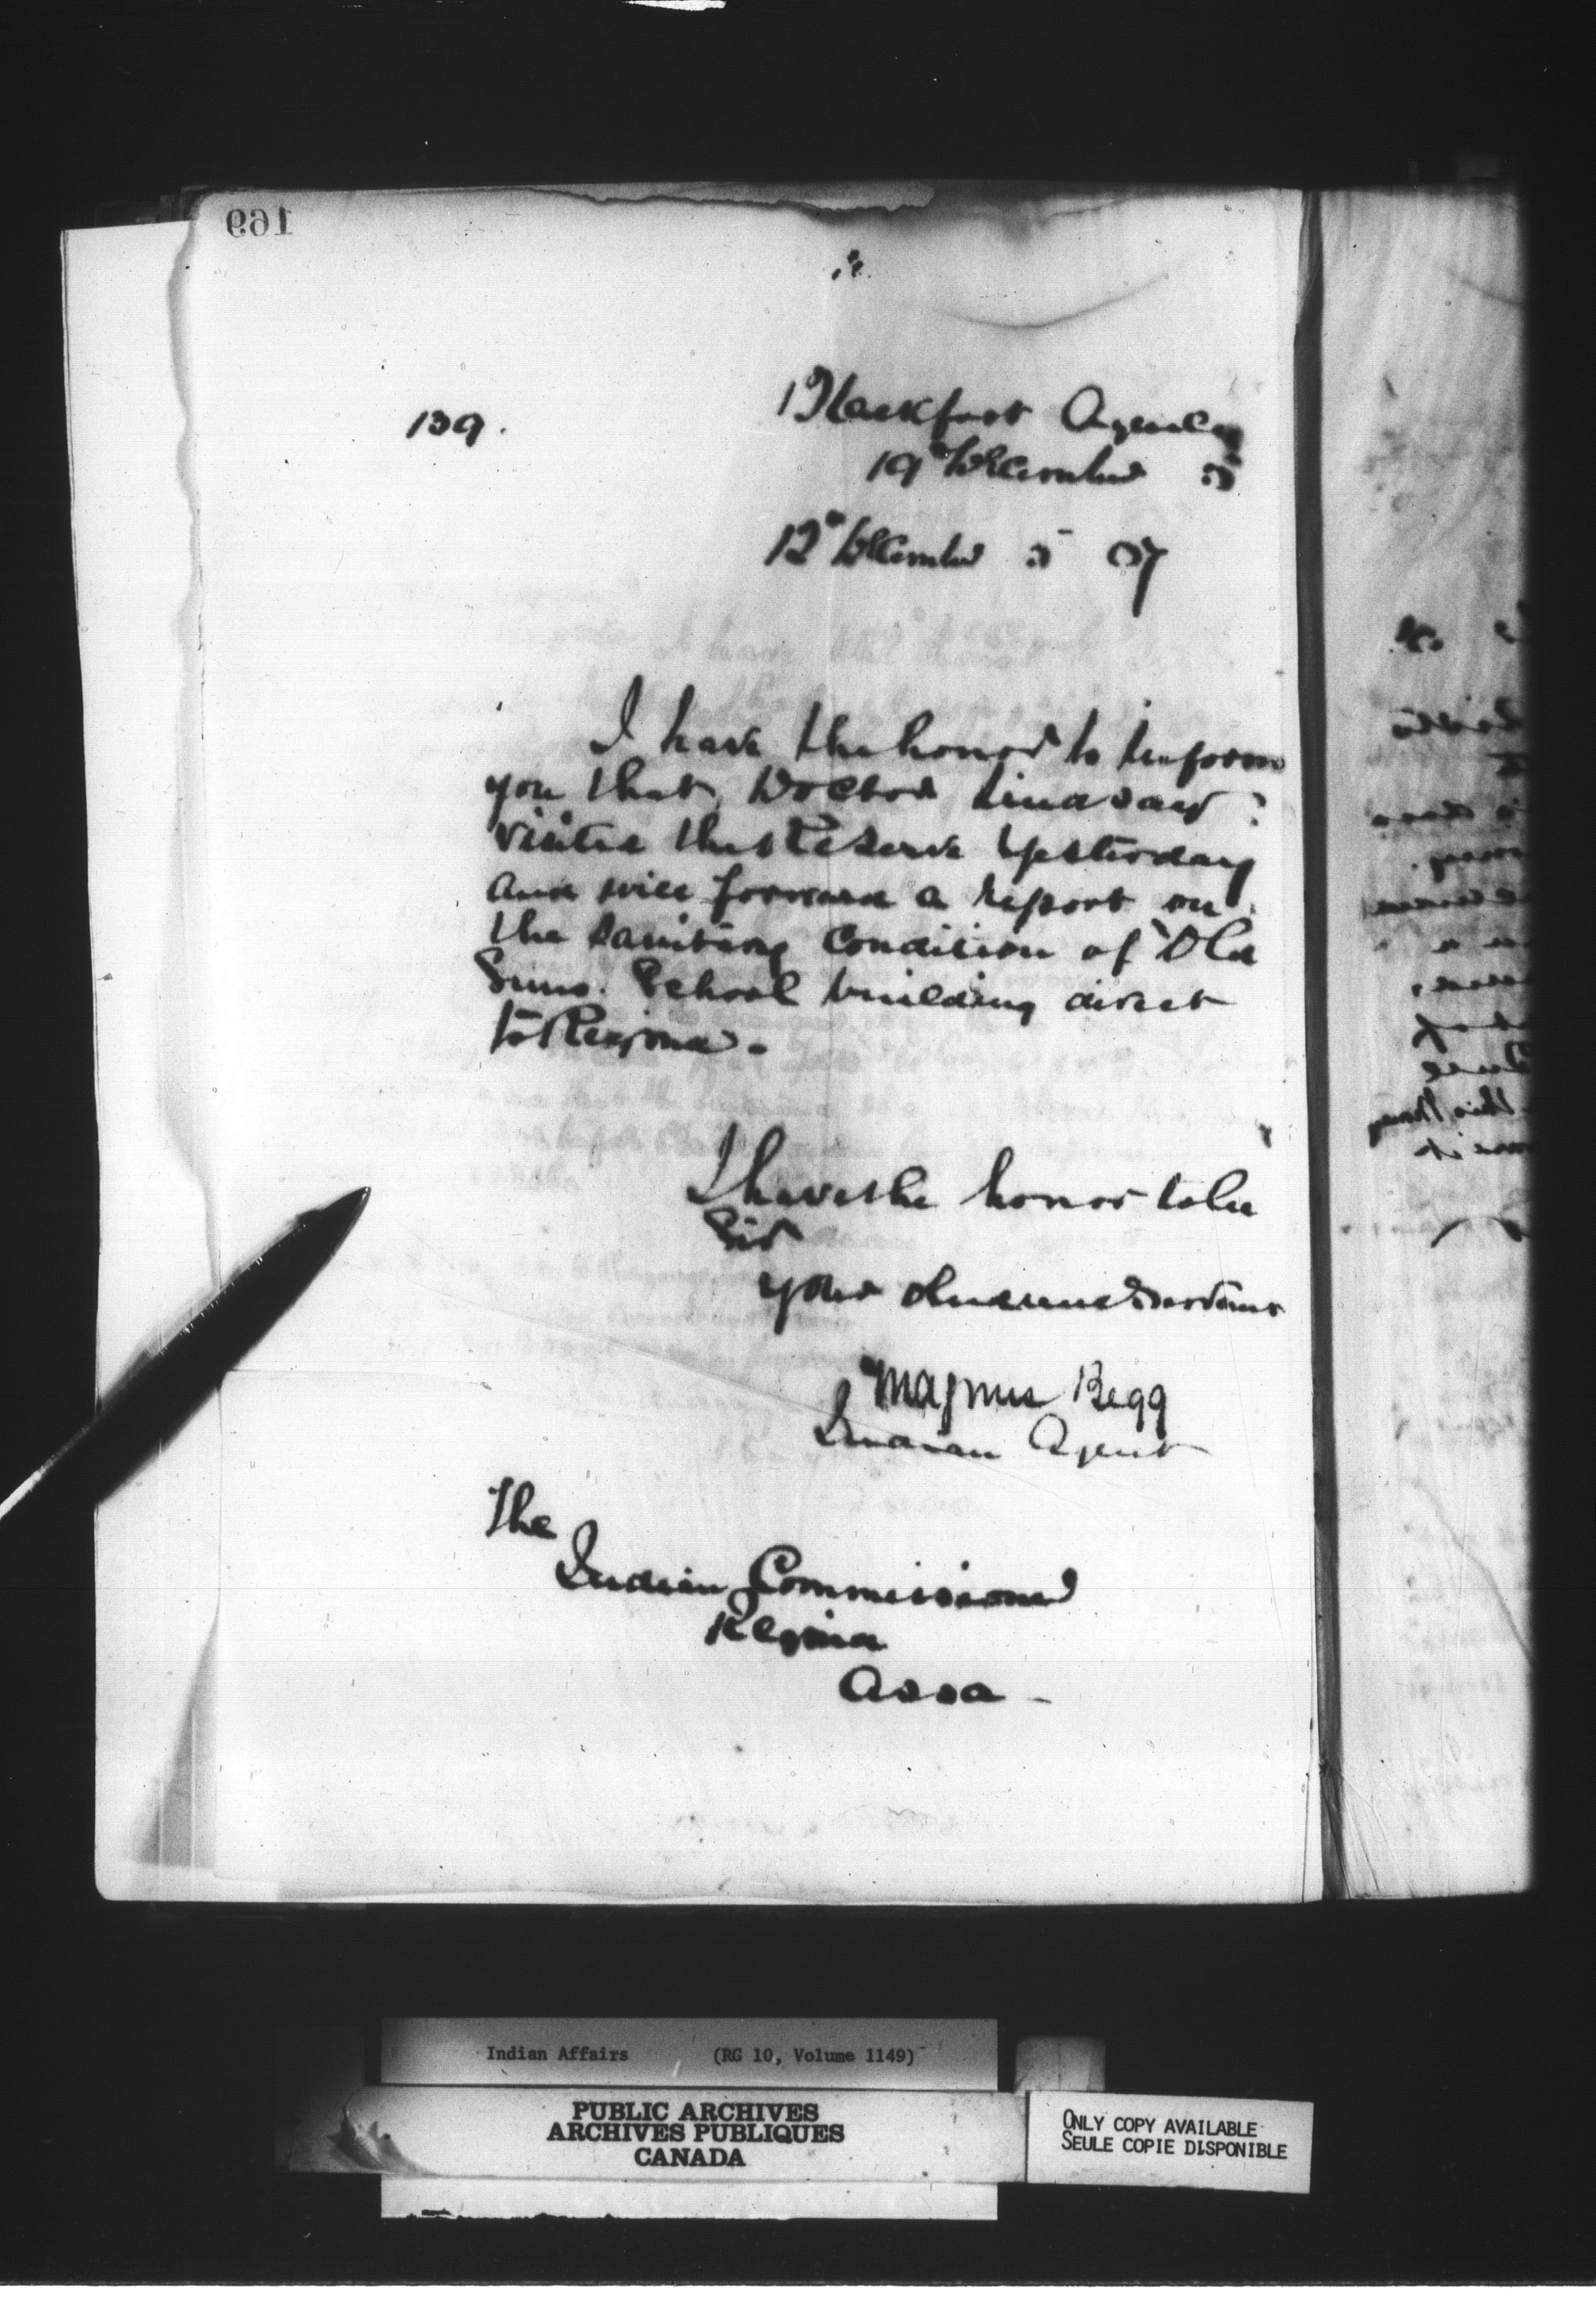 169
139.
Blackfoot Agency
19 December 5
12 December 5
I have the honor to inform
you that Doctor Lindsay
visited this Reserve yesterday
and will forward a report on
the Sanitary Condition of Old
Suns. School building direct
to Regina.
I have the honor to be
Sir
Your obedient Servant
Magnus Begg
Indian Agent
The
Indian Commissioner
Regina
Assa -
Indian Affairs (RG 10, Volume 1149)
PUBLIC ARCHIVES
ARCHIVES PUBLIQUES
CANADA
ONLY COPY AVAILABLE
SEULE COPIE DISPONIBLE